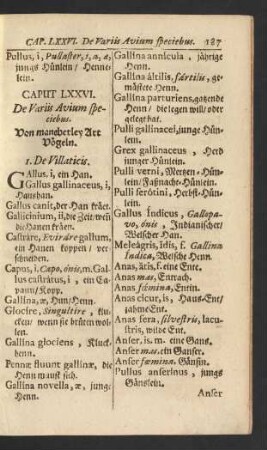 CAP. LXXVI. De Variis Avium speciebus. 187
Pullus, i, Pullaster, i, a, æ,
junges Hünlein / Henne-
lein.
CAPUT LXXVI.
De Variis Avium spe-
ciebus.
Von mancherley Art
Vögeln.
1. De Villaticis.
GAllus. i, ein Han.
Gallus gallinaceus, i,
Haushan.
Gallus canit, der Han kräet.
Gallicinium, ii, die Zeit / wen
die Hanen kräen.
Castrare, Evirare gallum,
ein Hanen koppen / ver-
schneiden.
Capus, i, Capo, ónis, m. Gal-
lus castratus, i, ein Ca-
paun / Kopp.
Gallina, æ, Hun / Henn.
Glocire, Singultire, klu-
cksen / wenn sie brüten wol-
len.
Gallina glociens, Kluck-
henn.
Pennæ fluunt gallinæ, die
Henn mauset sich.
Gallina novella, æ, junge
Henn.
Gallina annicula, jährige
Henn.
Gallina áltilis, fártilis, ge-
mästete Henn.
Gallina parturiens, gatzende
Henn / die legen will / oder
geleget hat.
Pulli gallinacei, junge Hün-
lein.
Grex gallinaceus, Herd
junger Hünlein.
Pulli verni, Mertzen-Hün-
lein / Fasnacht-Hünlein.
Pulli serótini, Herbst-Hün-
lein.
Gallus Índicus, Gallopa-
vo, ónis, Indianischer /
Welscher Han.
Meleágris, ídis, f. Gallina
Indica, Welsche Henn.
Anas, átis, f. eine Ente.
Anas mas, Entrach.
Anas fœmina, Entin.
Anas cicur, is, Haus-Ent /
zahme Ent.
Anas fera, silvestris, lacu-
stris, wilde Ent.
Anser, is. m. eine Gans.
Anser mas, ein Ganser.
Anser fœmina, Gänsin.
Pullus anserinus, jungs
Gänslein.
Anser